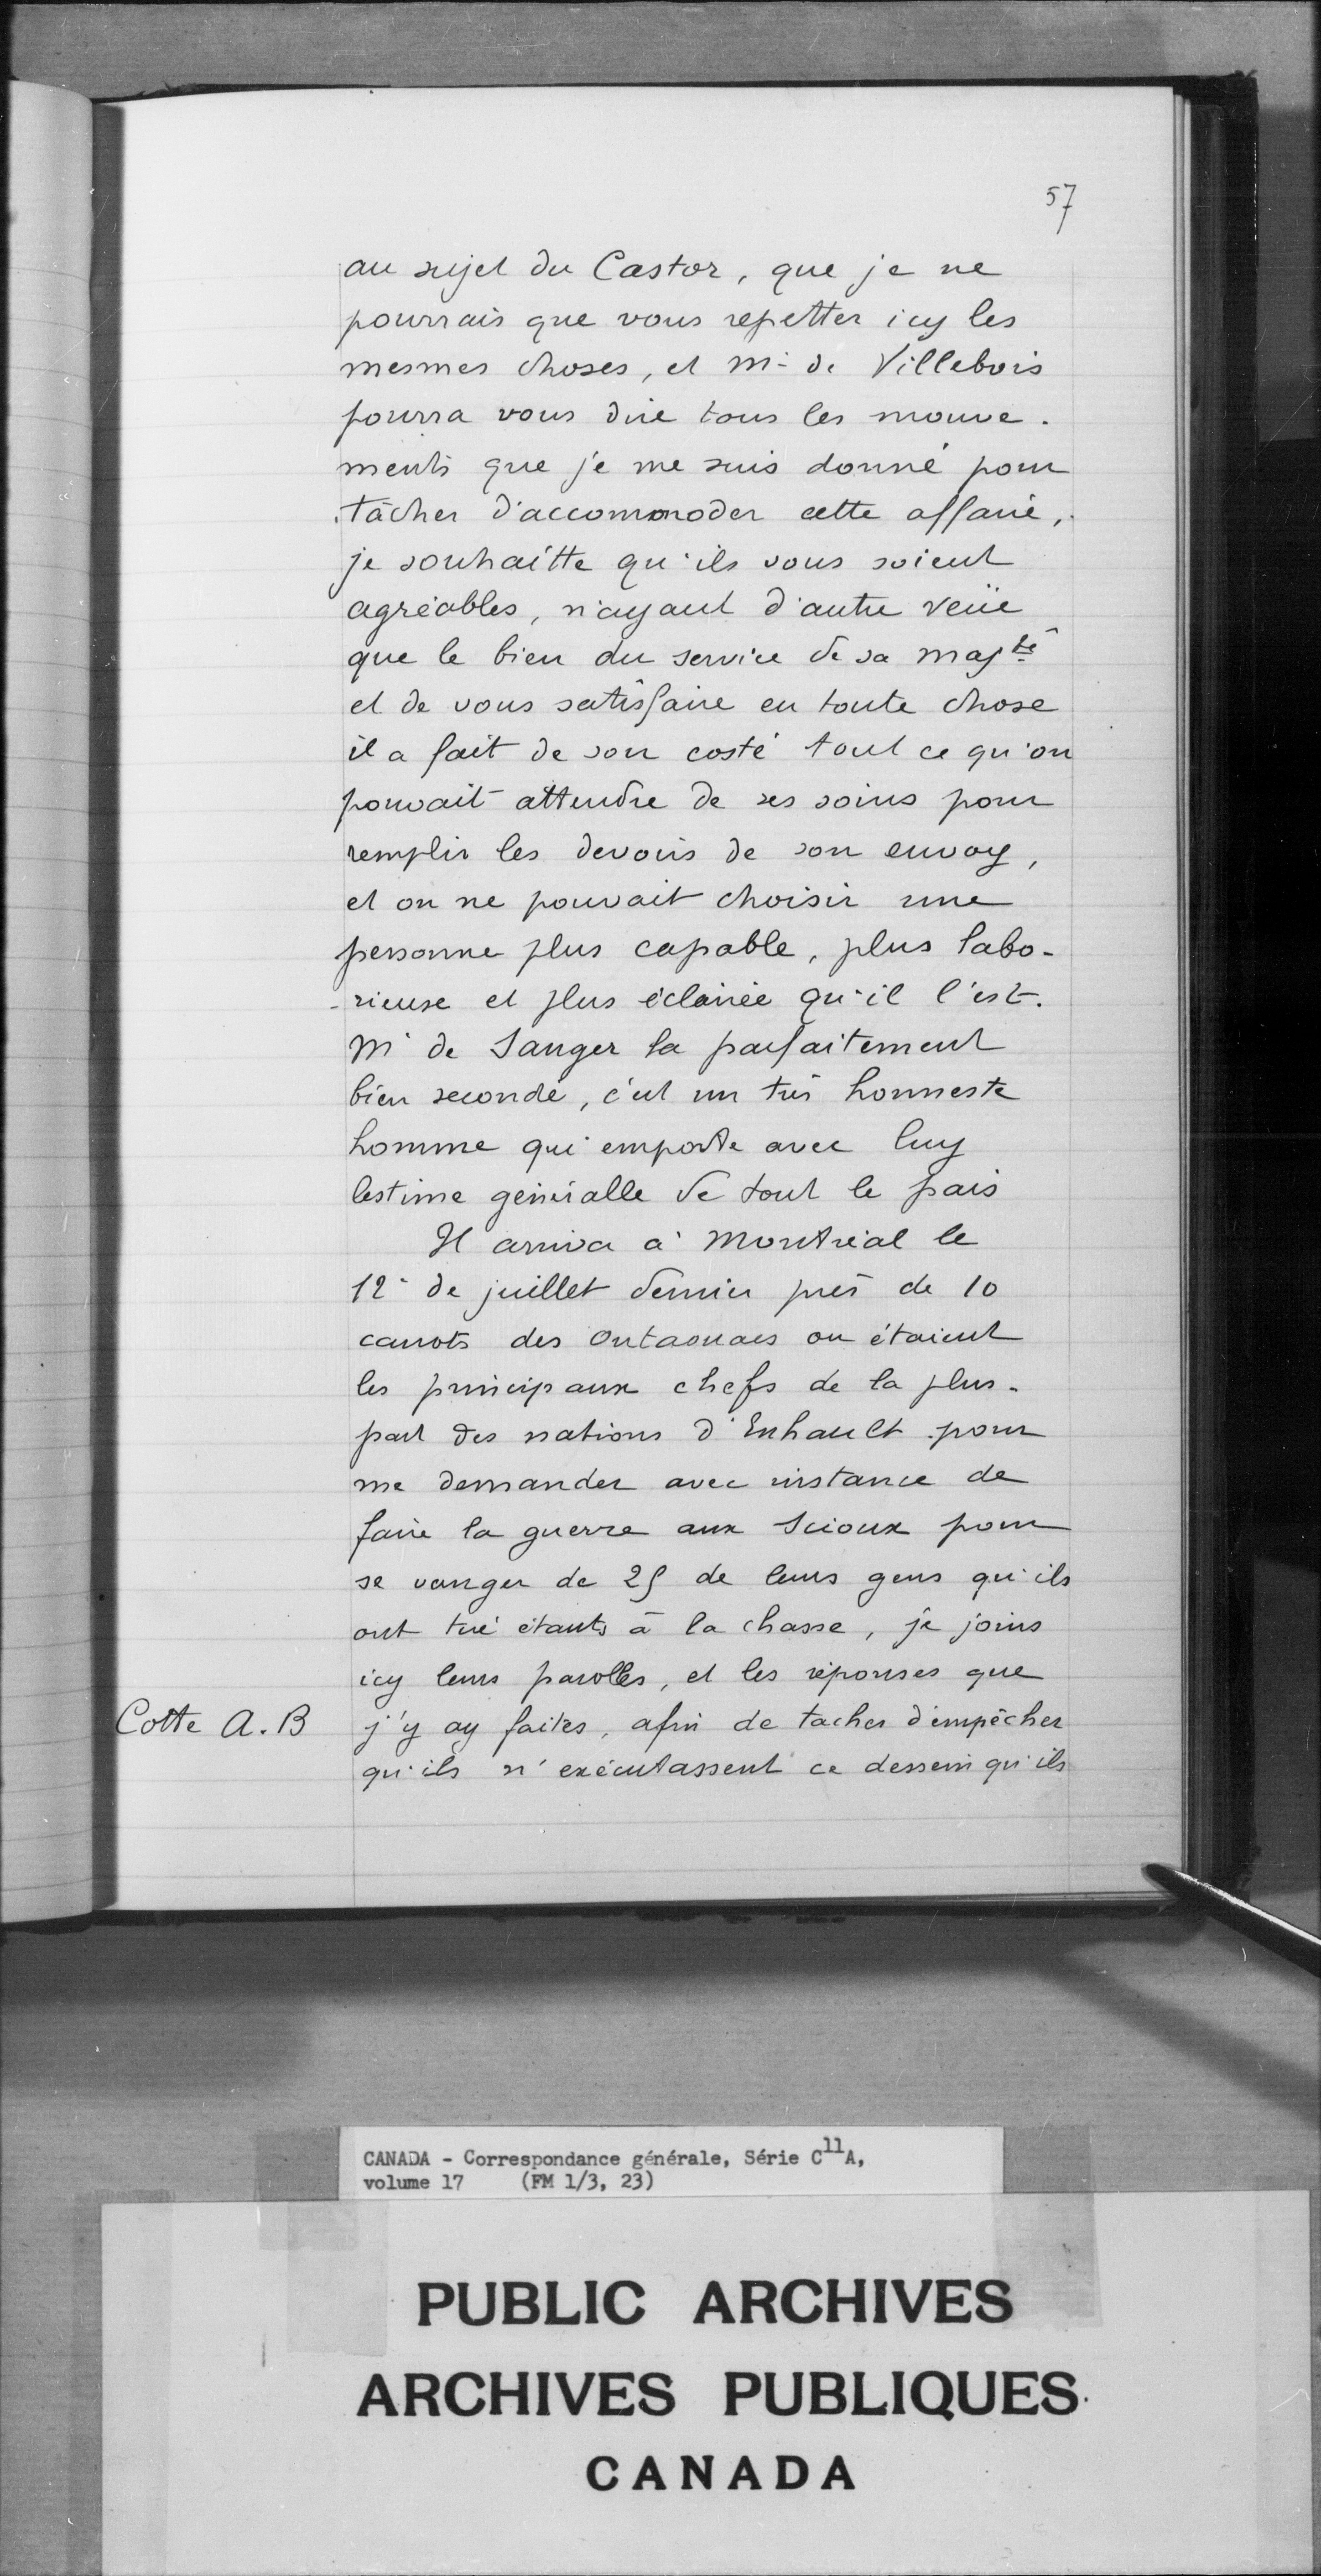 57
au sujet du Castor, que je ne
pourrais que vous repetter icy les
mesmes choses, et Mr de Villebois
pourra vous dire tous les mouve-
ments que je me suis donné pour
tâcher d'accommoder cette affaire,
je souhaitte qu'ils vous soient
agréables, n'ayant d'autre veüe
que le bien du service de sa Majté
et de vous satisfaire en toute chose
il a fait de son costé tout ce qu'on
pouvait attendre de ses soins pour
remplir les devoirs de son envoy,
et on ne pouvait choisir une
personne plus capable, plus labo-
-rieuse et plus éclairée qu'il l'est.
Mr de Sanger la parfaitement
bien secondé, c'est un très honneste
homme qui emporte avec luy
lestime généralle de tout le pais
Il arriva à Montréal le
12 de juillet dernier près de 10
canots des Outaouacs ou étaient
les principaux chefs de la plus-
part des nations d'Enhault pour
me demander avec instance de
faire la guerre aux Scioux pour
se vanger de 25 de leurs gens qu'ils
ont tué étants à la chasse, je joins
icy leurs parolles, et les réponses que
Cotte A.B j'y ay faites, afin de tacher d'empêcher
qu'ils n'exécutassent ce dessein qu'ils
CANADA - Correspondance générale, Série C11A,
volume 17 (FM 1/3, 23)
PUBLIC ARCHIVES
ARCHIVES PUBLIQUES
CANADA